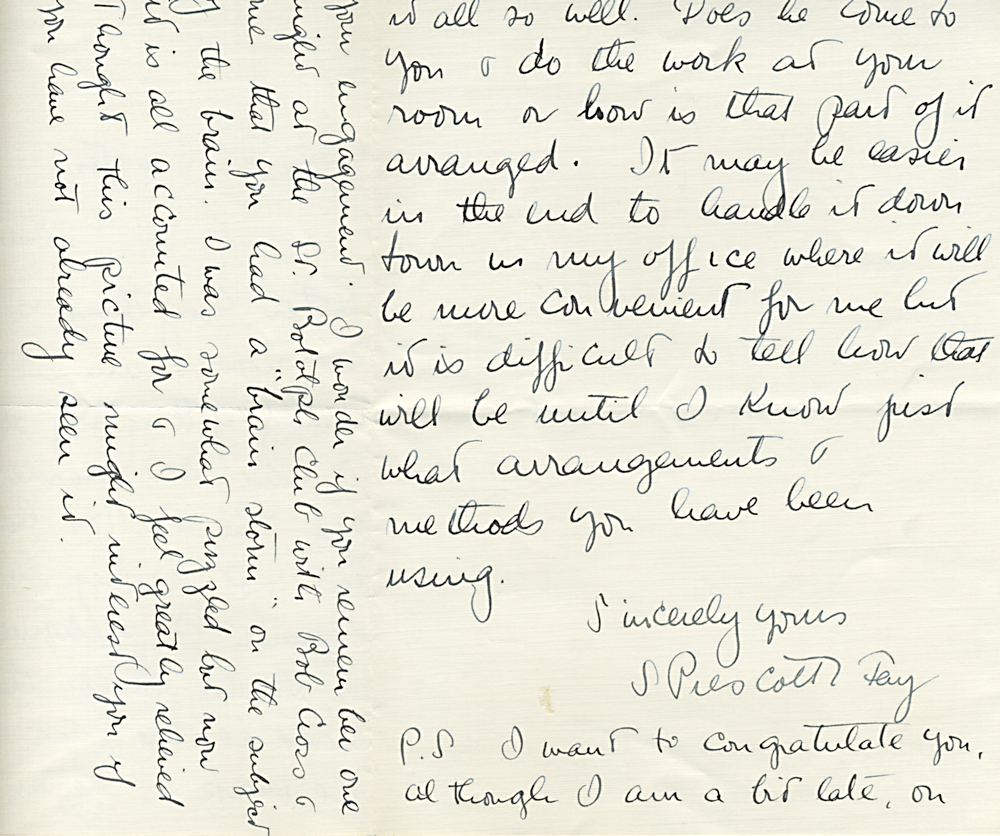 it all so well. Does he come to
you & do the work at your
room or how is that part of it
arranged. It may be easier
in the end to handle it down
town in my office where it will
be more convenient for me but
it is difficult to tell how that
will be until I know just
what arrangements &
methods you have been
using.
Sincerely yours
S Prescott Fay
P.S. I want to congratulate you,
although I am a bit late, on
your engagement. I wonder if you remember one
night at the St. Botolph Club with Bob Cross &
me that you had a "brain storm" on the subject
of the brain. I was somewhat puzzled but now
it is all accounted for & I feel greatly relieved
Thought this picture might interest you if
you have not already seen it.